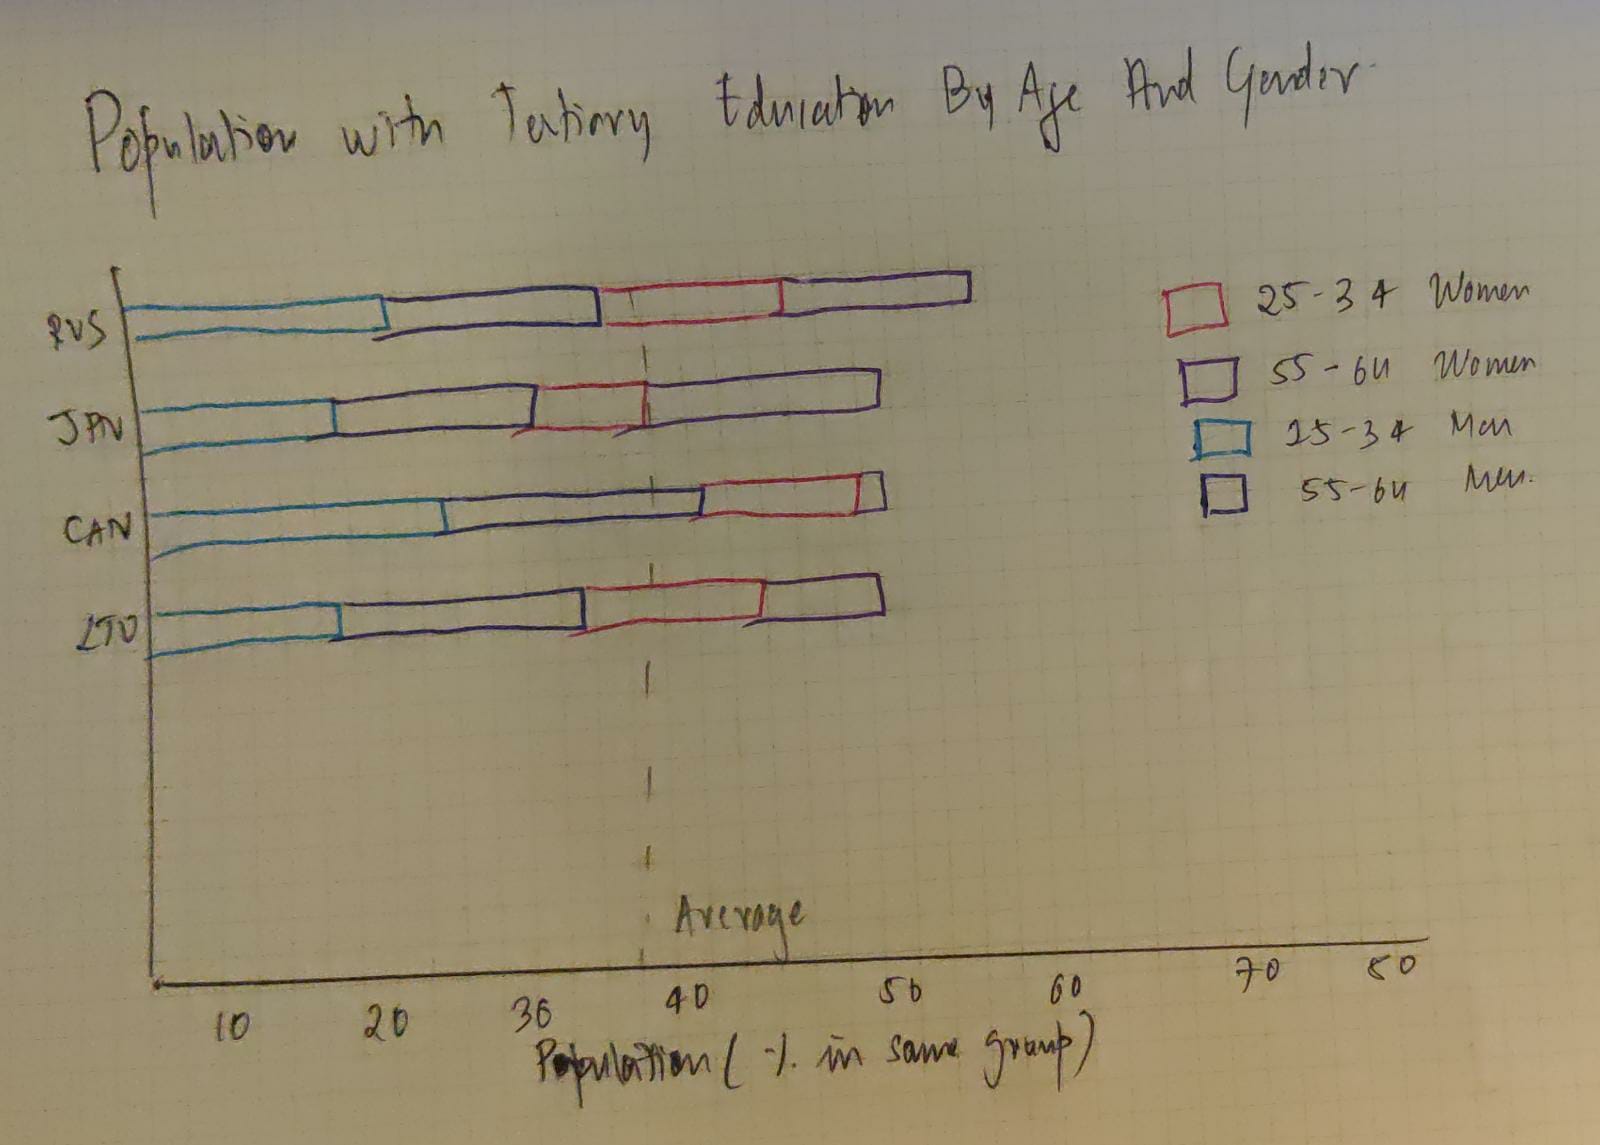 Population with Tertiary Education By Age And Gender
25-34 Women
RUS
55-64 Women
JPN
25-34 Men
55-64 Men.
CAN
LTU
Average
10 20 30 40 50 60 70 80
Population (% in same group)